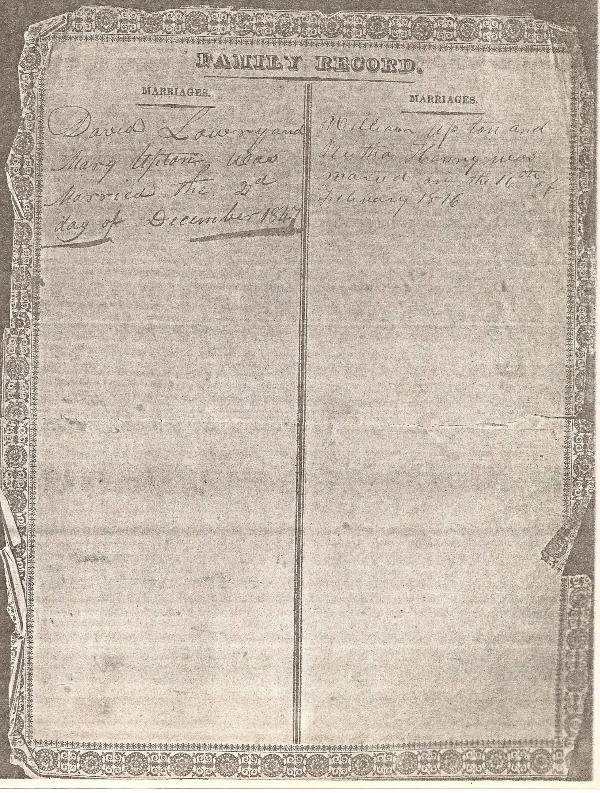 FAMILY RECORD.
MARRIAGES.
David Lowry and
Mary Upton was
Married the 2d
day of December 1847
MARRIAGES.
William Upton and
was
maried on the 16th of
February 1816